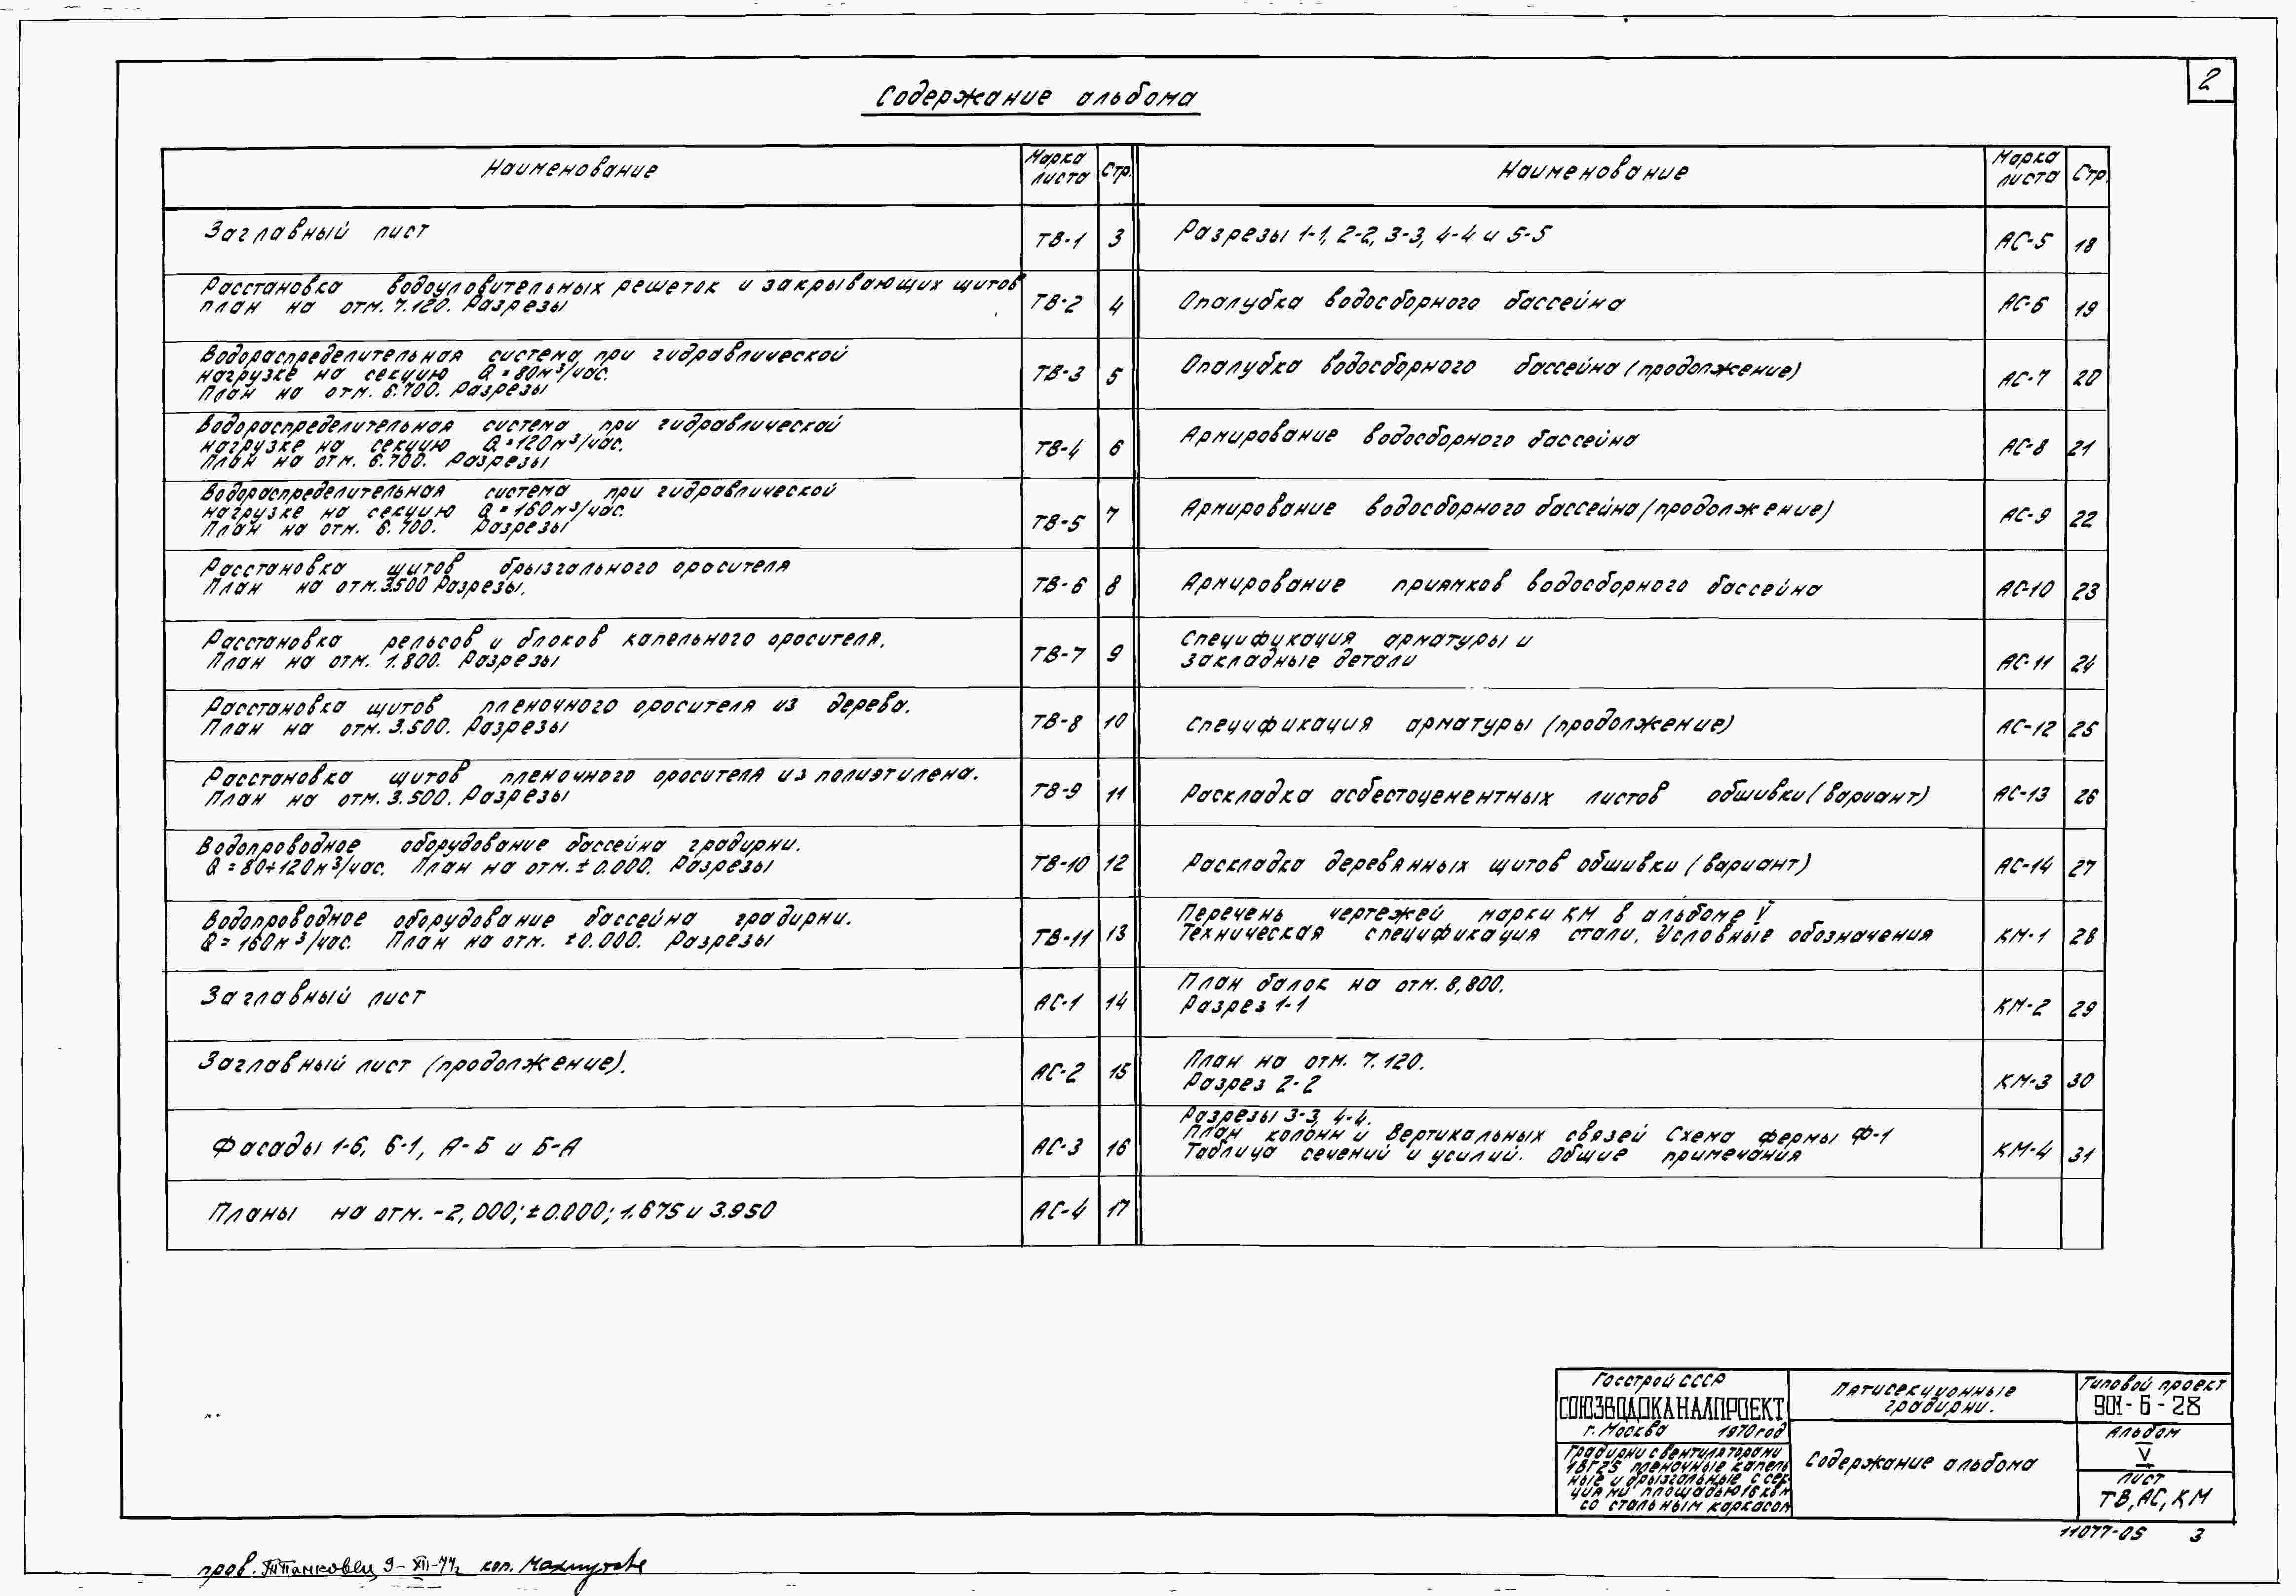 2
Содержание альбома
Наименование
Марка листа
Стр.
Заглавный лист
ТВ-1
3
Расстановка водоуловительных решеток и закрывающих щитов
план на отм. 7.120. Разрезы
ТВ-2
4
Водораспределительная система при гидравлической
нагрузке на секцию Q=80м³/час.
План на отм. 6.700. Разрезы
ТВ-3
5
Водораспределительная система при гидравлической
нагрузке на секцию Q=120м³/час.
План на отм. 6.700. Разрезы
ТВ-4
6
Водораспределительная система при гидравлической
нагрузке на секцию Q=160м³/час.
План на отм. 6.700. Разрезы
ТВ-5
7
Расстановка щитов брызгального оросителя
План на отм. 3.500 Разрезы.
ТВ-6
8
Расстановка рельсов и блоков капельного оросителя.
План на отм. 1.800. Разрезы
ТВ-7
9
Расстановка щитов пленочного оросителя из дерева.
План на отм. 3.500. Разрезы
ТВ-8
10
Расстановка щитов пленочного оросителя из полиэтилена.
План на отм. 3.500. Разрезы
ТВ-9
11
Водопроводное оборудование бассейна градирни.
Q=80÷120м³/час. План на отм. ±0.000. Разрезы
ТВ-10
12
Водопроводное оборудование бассейна градирни.
Q=160м³/час. План на отм. ±0.000. Разрезы
ТВ-11
13
Заглавный лист
АС-1
14
Заглавный лист (продолжение).
АС-2
15
Фасады 1-6, 6-1, А-Б и Б-А
АС-3
16
Планы на отм. -2,000; ±0.000; 1.675 и 3.950
АС-4
17
Наименование
Марка листа
Стр.
Разрезы 1-1, 2-2, 3-3, 4-4 и 5-5
АС-5
18
Опалубка водосборного бассейна
АС-6
19
Опалубка водосборного бассейна (продолжение)
АС-7
20
Армирование водосборного бассейна
АС-8
21
Армирование водосборного бассейна (продолжение)
АС-9
22
Армирование приямков водосборного бассейна
АС-10
23
Спецификация арматуры и
закладные детали
АС-11
24
Спецификация арматуры (продолжение)
АС-12
25
Раскладка асбестоцементных листов обшивки (вариант)
АС-13
26
Раскладка деревянных щитов обшивки (вариант)
АС-14
27
Перечень чертежей марки КМ в альбоме V
Техническая спецификация стали. Условные обозначения
КМ-1
28
План балок на отм. 8,800.
Разрез 1-1
КМ-2
29
План на отм. 7.120.
Разрез 2-2
КМ-3
30
Разрезы 3-3, 4-4.
План колонн и вертикальных связей Схема фермы Ф-1
Таблица сечений и усилий. Общие примечания
КМ-4
31
Госстрой СССР
СОЮЗВОДОКАНАЛПРОЕКТ
г. Москва 1970 год
Градирни с вентиляторами
1ВГ25 пленочные капель
ные и брызгальные с сек
циями площадью 16 кв м
со стальным каркасом
Пятисекционные
градирни.
Содержание альбома
Типовой проект
901-6-28
Альбом
V
Лист
ТВ, АС, КМ
11077-05 3
пров. 9-XII-77г. коп.